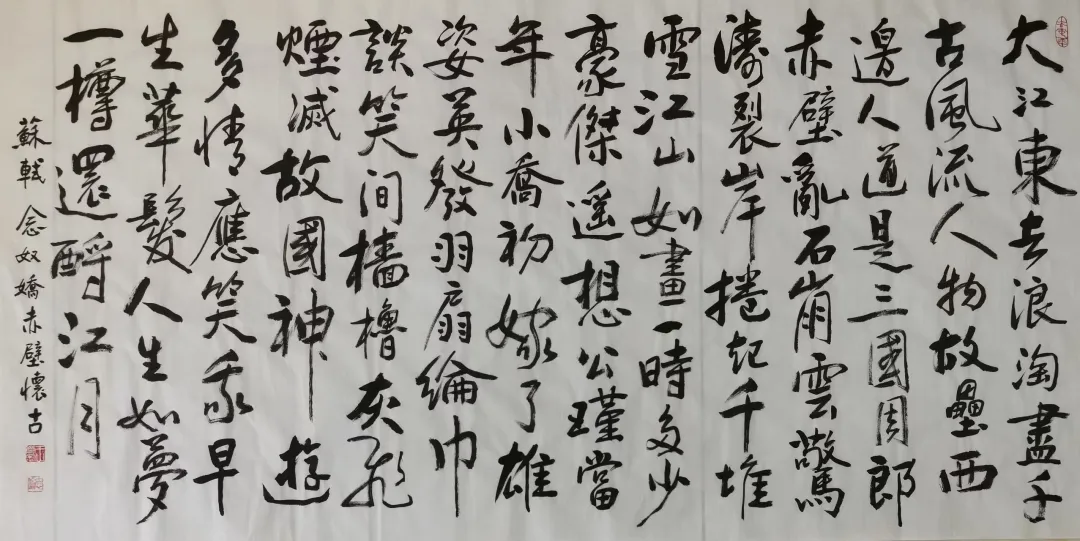 大江東去浪淘盡千
古風流人物故壘西
邊人道是三國周郎
赤壁亂石崩雲驚
濤裂岸捲起千堆
雪江山如畫一時多少
豪傑遥想公瑾當
年小喬初嫁了雄
姿英發羽扇綸巾
談笑間檣櫓灰飛
煙滅故國神遊
多情應笑我早
生華髮人生如夢
一樽還酹江月
蘇軾 念奴嬌赤壁懷古